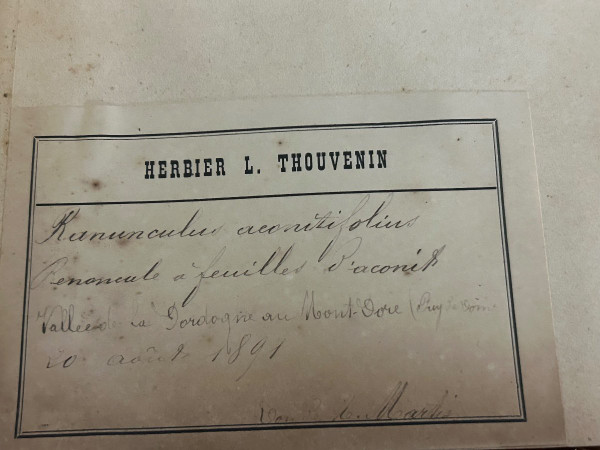 HERBIER L. THOUVENIN
Ranunculus aconitifolius
Renoncule à feuilles d'aconit
Vallée de la Dordogne au Mont-Dore (Puy de Dôme
20 août 1891